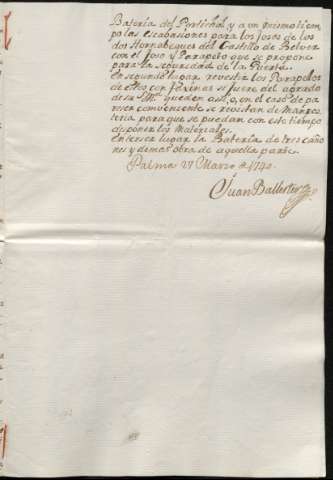 Bateria del Portichol, y a un mismo tiem
po las escabasiones para los fosos de los
dos Hornabeques del Castillo de Belver
con el foso y Parapeto que se propone
para la seguridad de la Puerta.
En segundo lugar, revestir los Parapetos
de otro con fáxinas si fuere del agrado
de su Mag. queden assi, o, en el caso de pa
recer conveniente se revistan de Mampos
teria para que se puedan con este tiempo
disponer los Materiales.
En tercer lugar la Bateria de tres caño
nes y demas obra de aquella parte.
Palma 27 Marzo de 1740
Juan Ballester